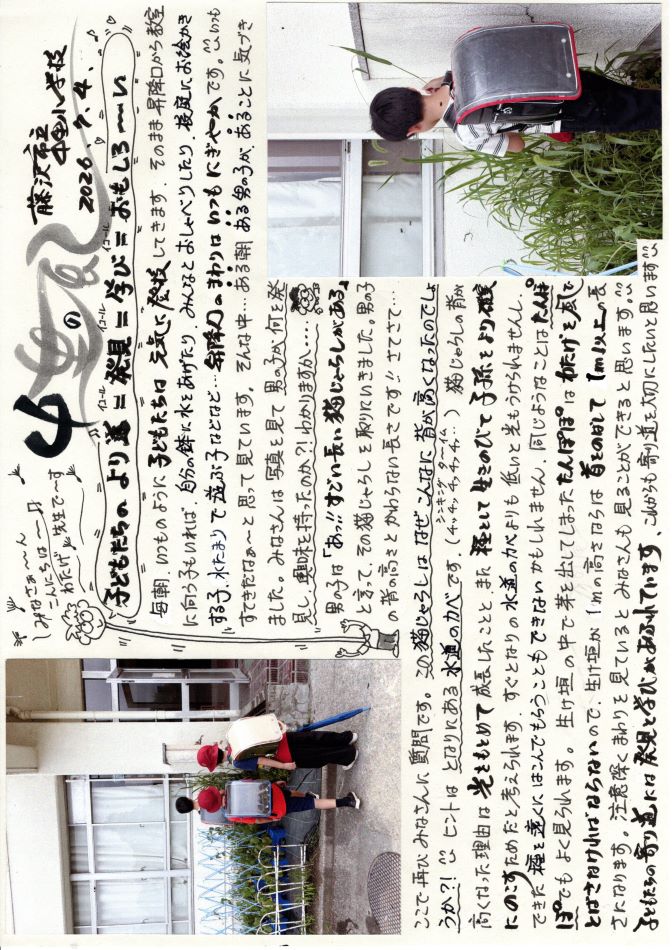 藤沢市立
小学校
2026.7.4.
の
みなさぁ～ん
こんにちは～!!
わたげ
先生で～す
子どもたちのより道＝発見＝学び＝おもしろ～い
イコール
イコール
イコール
毎朝、いつものように子どもたちは元気に登校してきます。そのまま昇降口から教室
に向う子もいれば、自分の鉢に水をあげたり、みんなとおしゃべりしたり、校庭にお絵かき
する子、水たまりで遊ぶ子などなど…昇降口のまわりはいつもにぎやかです。いつも
すてきだなぁ～と思って見ています。そんな中…ある朝、ある男の子が、あることに気づき
ました。みなさんは写真を見て男の子が何を発
見し、興味を持ったのか?!わかりますか…
男の子は「あっ!!すごい長い猫じゃらしがある」
と言って、その猫じゃらしを取りにいきました。男の子
の背の高さとかわらない長さです!!さてさて…
ここで再びみなさんに質問です。この猫じゃらしはなぜこんなに背が高くなったのでしょ
うか?!ヒントはとなりにある水道のカベです。（チッチッチッチッ…）猫じゃらしの背が
シンキングターイム
高くなった理由は光をもとめて成長したことと、また種として生きのびて子孫をより確実
にのこすためだと考えられます。すぐとなりの水道のカベよりも低いと光もうけられませんし、
できた種を遠くにはこんでもらうこともできないかもしれません。同じようなことはたんぽ
ぽでもよく見られます。生け垣の中で芽を出してしまったたんぽぽはわたげを風で
とばさなければならないので、生け垣が1mの高さならば首をのばして1m以上の長
さになります。注意深くまわりを見ているとみなさんも見ることができると思います。
子どもたちの寄り道には発見と学びがあふれています。これからも寄り道を大切にしたいと思います